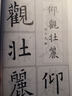 仰觀壯麗
仰
觀壯麗